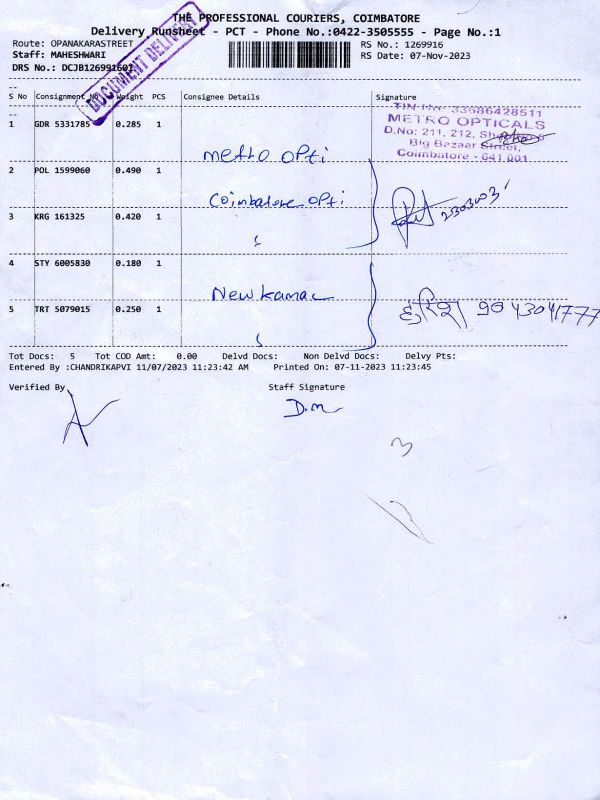 THE PROFESSIONAL COURIERS, COIMBATORE
Delivery Runsheet - PCT - Phone No.:0422-3505555 - Page No.:1
Route: OPANAKARASTREET
RS No.: 1269916
Staff: MAHESHWARI
RS Date: 07-Nov-2023
DRS No.: DCJB126991601
DOCUMENT DELIVERY
S No Consignment No Weight PCS Consignee Details Signature
TIN No: 33986428511
METRO OPTICALS
D.No: 211, 212,
Big Bazaar Street,
Coimbatore - 641 001
1 GDR 5331785 0.285 1
Metro opti
2 POL 1599060 0.490 1
Coimbatore opti
3 KRG 161325 0.420 1
4 STY 6005830 0.180 1
New kamal
5 TRT 5079015 0.250 1
Tot Docs: 5 Tot COD Amt: 0.00 Delvd Docs: Non Delvd Docs: Delvy Pts:
Entered By :CHANDRIKAPVI 11/07/2023 11:23:42 AM Printed On: 07-11-2023 11:23:45
Verified By
Staff Signature
D.M